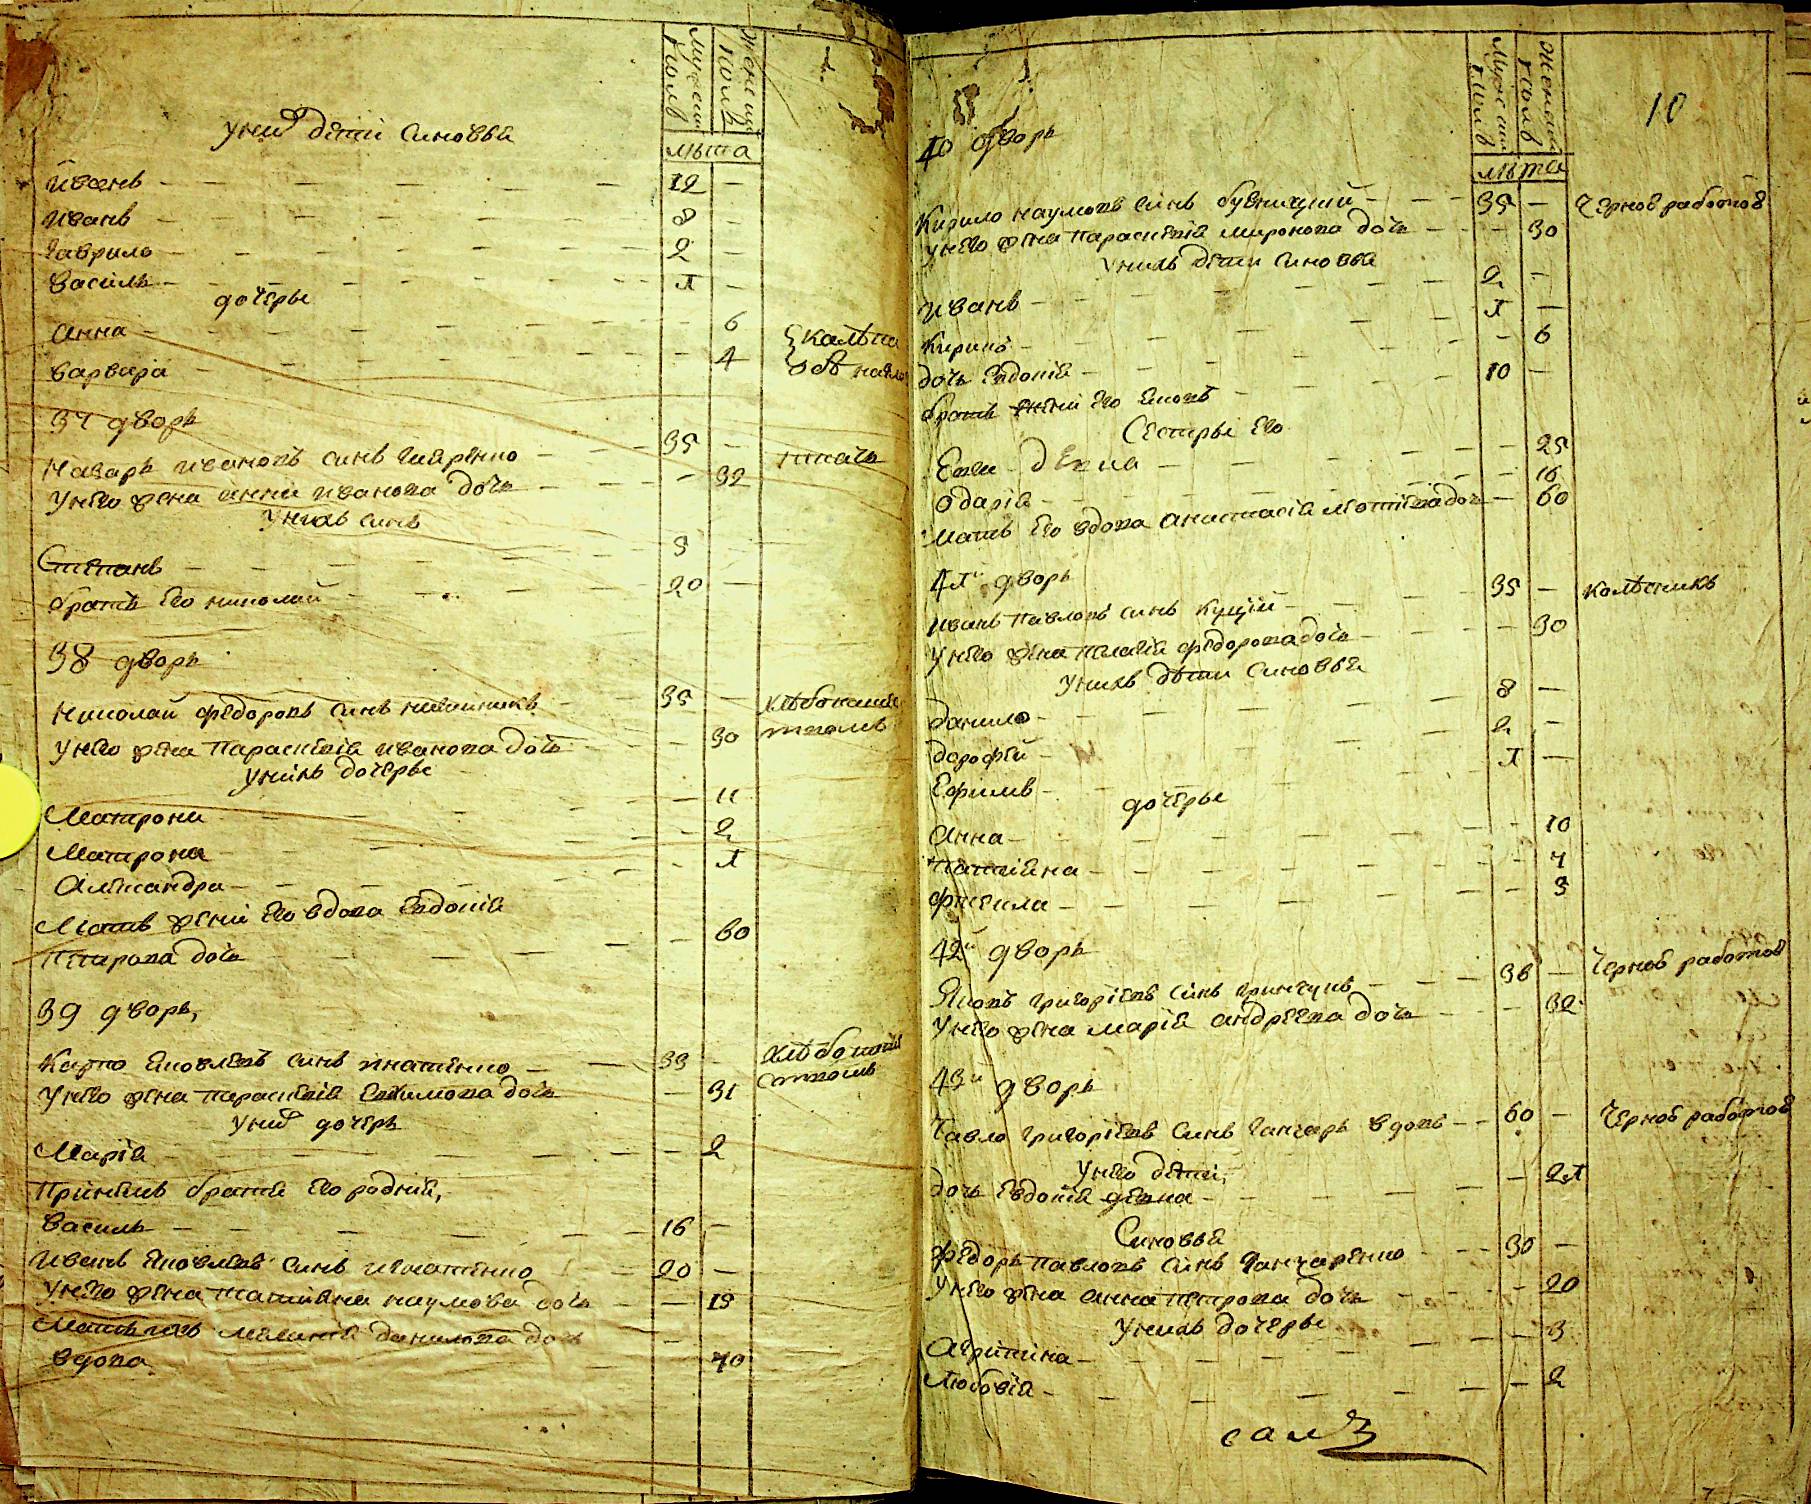 мужеска полъ
женска полъ
лѣта
у них дѣти синовья
иванъ 12 —
иванъ 8 —
гаврило 2 —
василь 1 —
дочеры
анна — 6
варвара — 4
калѣка
37 дворъ
назаръ ивановъ синъ 35 —
ткачь
у него жена анна иванова дочь — 32
у нихъ синъ
Степанъ 5
братъ его николай 20 —
38 дворъ
николай федоровъ синъ 35 —
у него жена параскевія иванова дочь — 30
у нихъ дочеры
Матрона — 11
Матрона — 2
Александра — 1
Мать жены его вдова Евдокія
петрова дочь — 60
39 дворъ,
Карпо яковлевъ синъ игнатенко 33 —
у него жена параскевія Евдимова дочь — 31
у них дочерь
Марія — 2
При немъ братя его родніе,
василь 16 —
иванъ яковлевъ синъ игнатенко 20 —
у него жена татияна наумова дочь — 19
мать ихъ меланія данилова дочь —
вдова 70
мужеска полъ
женска полъ
лѣта
10
40 дворъ
Кирило наумовъ синъ бубницкий 35 — чернов работов
у него жена параскевія миронова дочь — 30
у нихъ дѣти синовья
иванъ 2 —
Кирило 1 —
дочь Евдокія — 6
братъ его яковъ 10 —
Сестры его
Евга девка — 25
одарія — 16
мать его вдова анастасія матвѣева дочь — 60
41й дворъ
иванъ павловъ синъ куций 35 — колѣсникъ
у него жена пелагія федорова дочь — 30
у нихъ дѣти синовья
данило 8 —
дорофѣй 2 —
Ефимъ 1 —
дочеры
анна — 10
татияна — 7
фекла — 5
42й дворъ
яковъ григоріевъ синъ гринчукъ 36 — чернов работов
у него жена марія андреева дочь — 32
43й дворъ
Павло григоріевъ синъ ганчаръ вдовъ 60 — чернов работов
у него дѣти,
дочь евдокія девка — 21
Синовья
федоръ павловъ синъ ганчаренко 30 —
у него жена анна петрова дочь — 20
у нихъ дочеры
агрипина — 3
любовія — 2